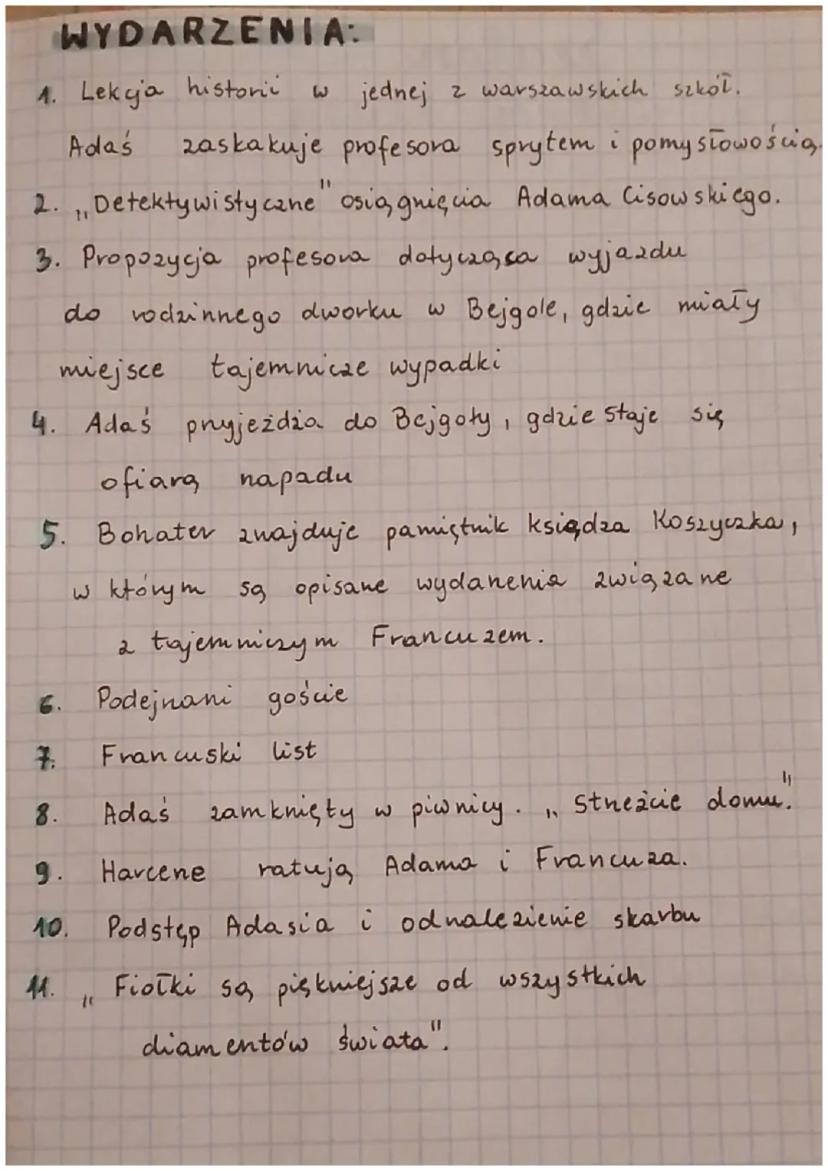 WYDARZENIA:
1. Lekcja historii w jednej z warszawskich szkół.
Adaś zaskakuje profesora sprytem i pomysłowością.
2. „Detektywistyczne" osiągnięcia Adama Cisowskiego.
3. Propozycja profesora dotycząca wyjazdu
do rodzinnego dworku w Bejgole, gdzie miały
miejsce tajemnicze wypadki
4. Adaś przyjeżdża do Bejgoły, gdzie staje się
ofiarą napadu
5. Bohater znajduje pamiętnik księdza Koszyczka,
w którym są opisane wydarzenia związane
z tajemniczym Francuzem.
6. Podejrzani goście
7. Francuski list
8. Adaś zamknięty w piwnicy. „Strzeżcie domu."
9. Harcerze ratują Adama i Francuza.
10. Podstęp Adasia i odnalezienie skarbu
11. „Fiołki są piękniejsze od wszystkich
diamentów świata".